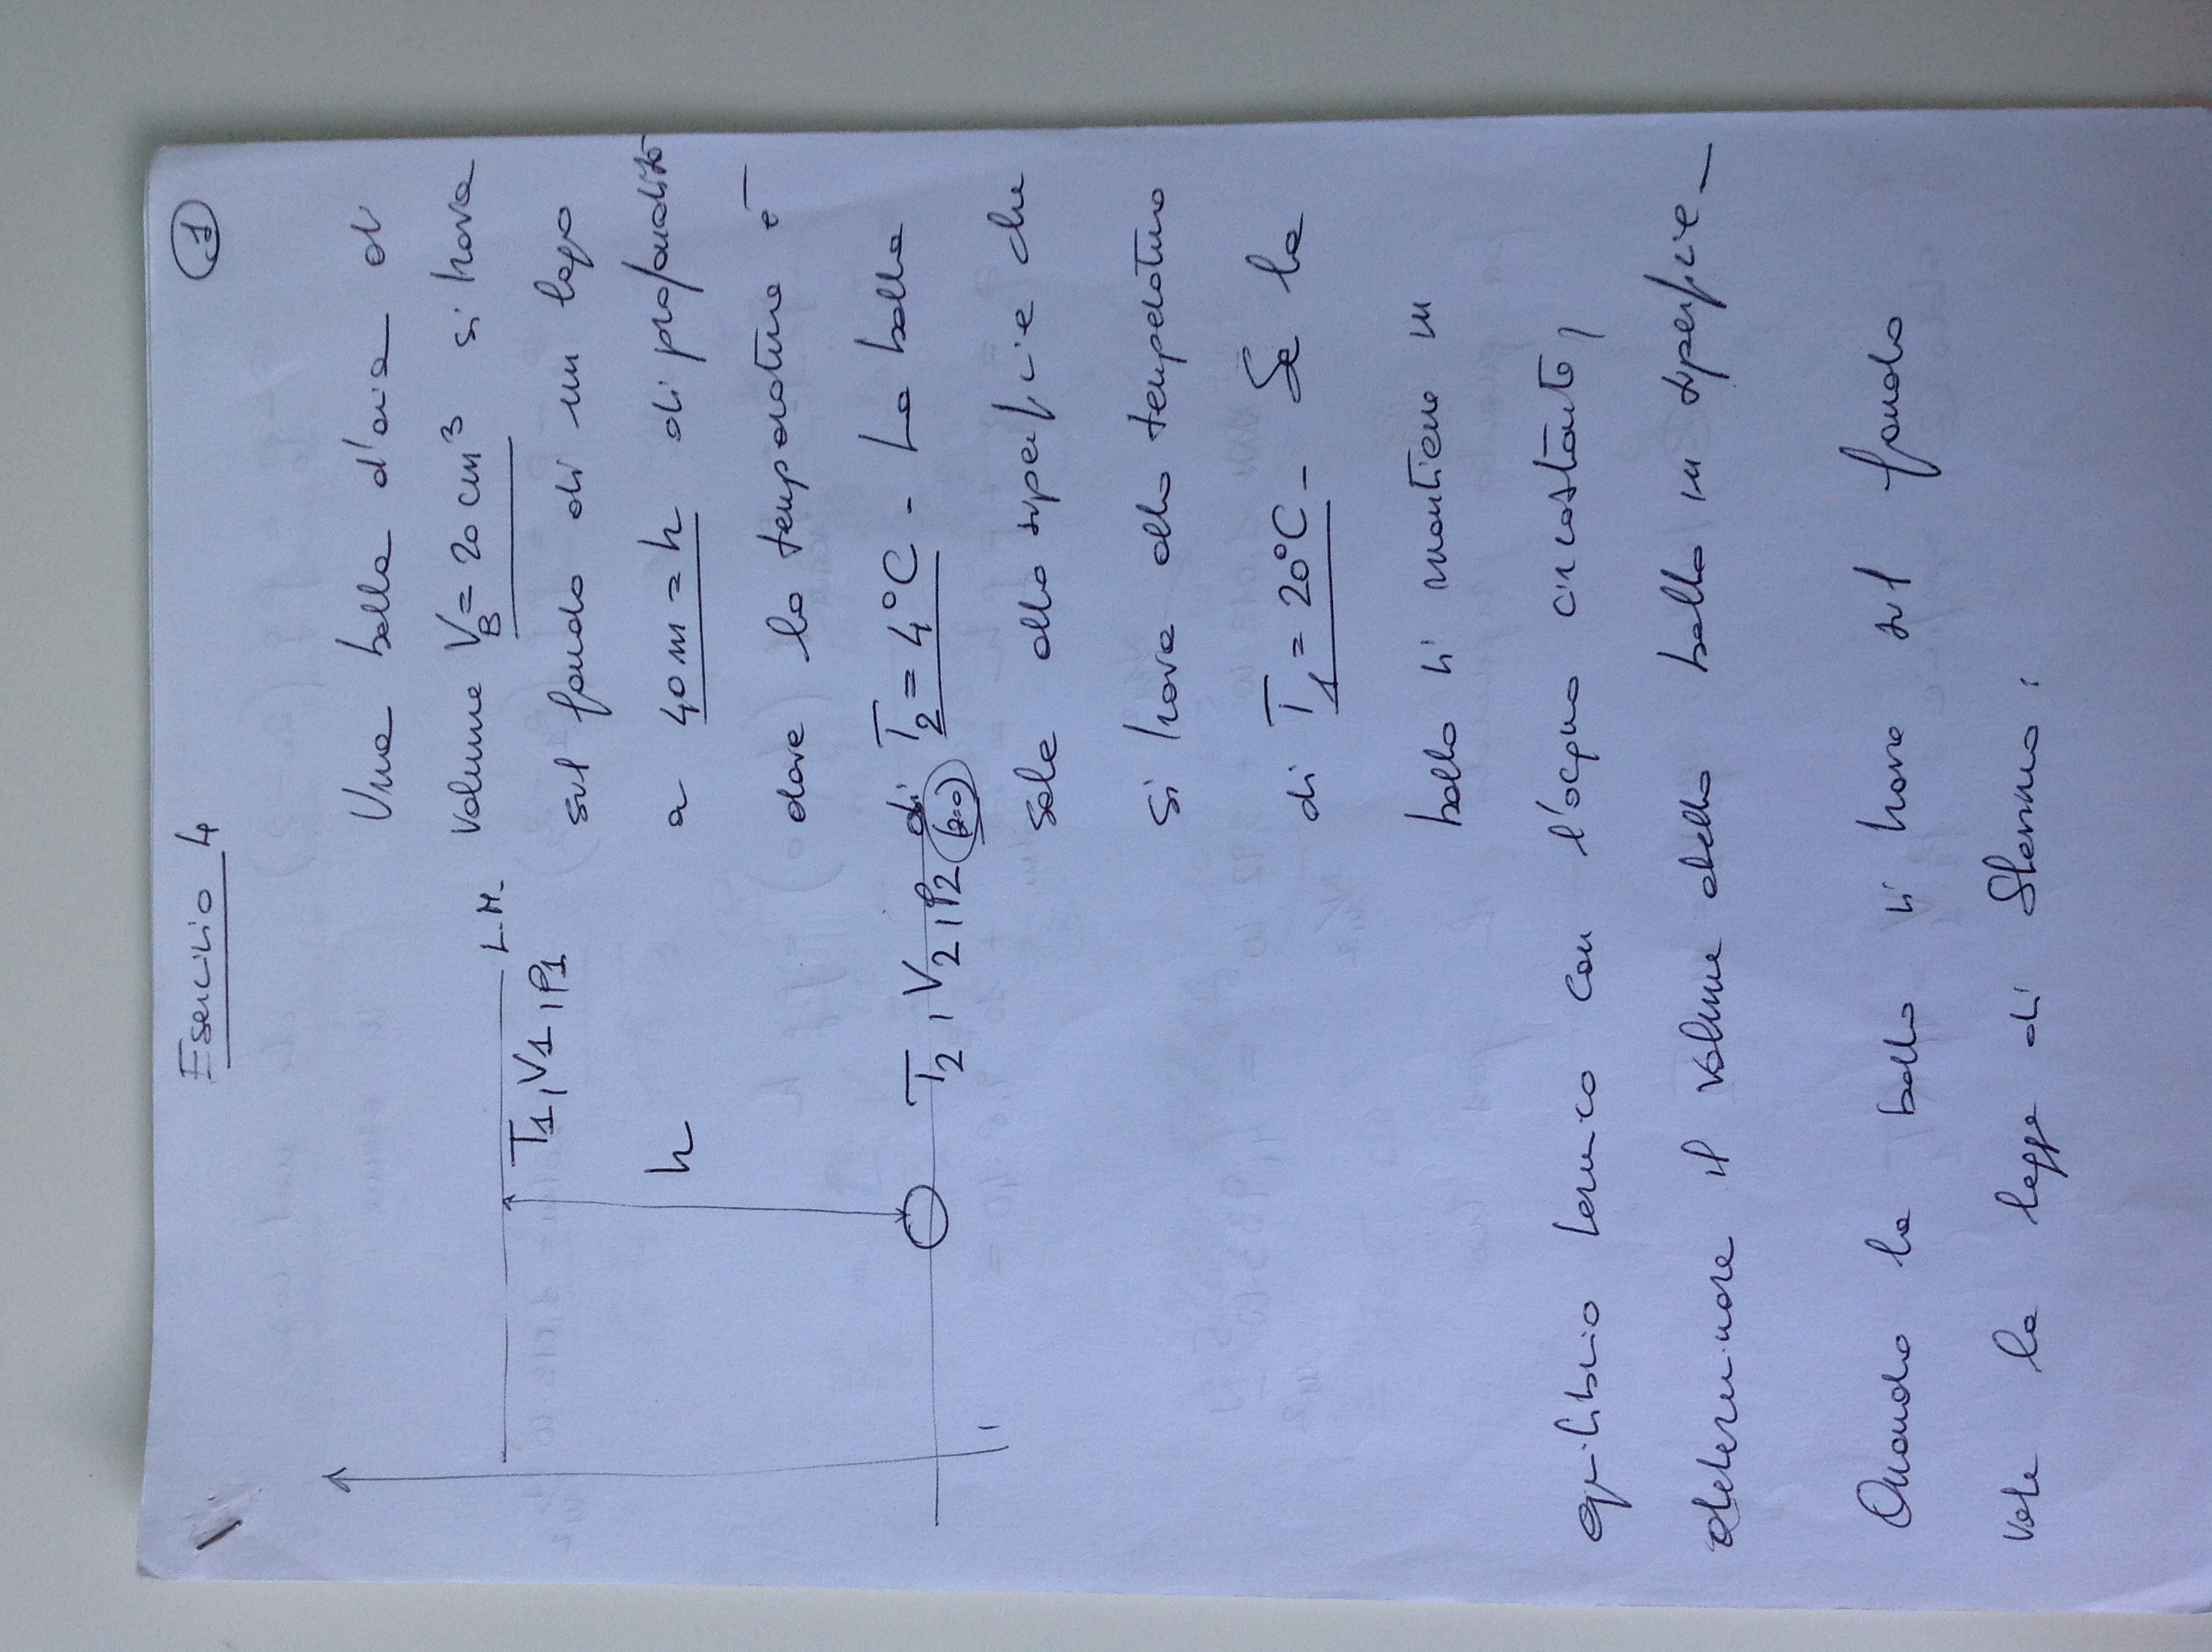 Esercizio 4
1
Una bolla d'aria di
volume V_B = 20 cm³ si trova
sul fondo di un lago
a 40 m = h di profondità
dove la temperatura è
di T2 = 4°C - La bolla
sale alla superficie che
si trova alla temperatura
di T1 = 20°C - Se la
bolla si mantiene in
equilibrio termico con l'acqua circostante,
determinare il volume della bolla in superficie -
L.M.
T1, V1, P1
h
T2, V2, P2
(z=0)
Quando la bolla si trova sul fondo
vale la legge di Stevino: